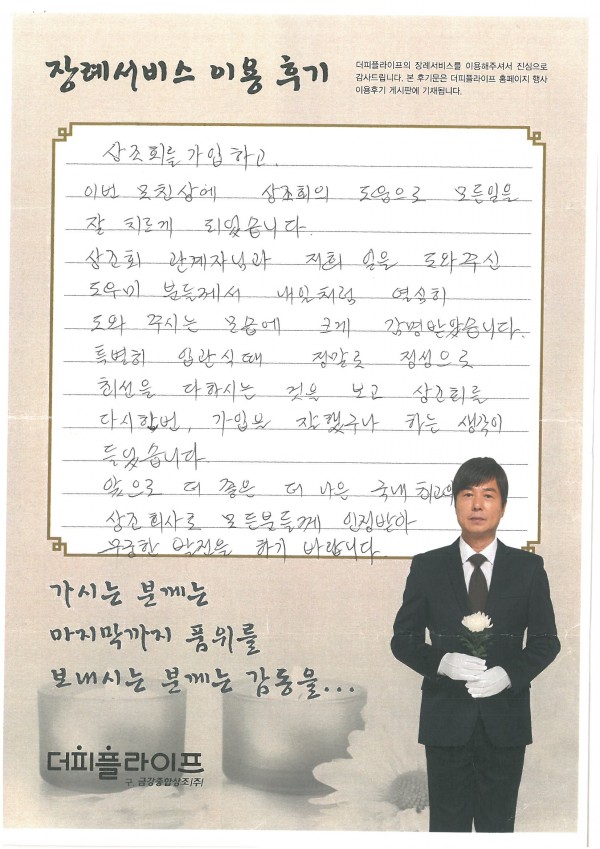 장례서비스 이용 후기
더피플라이프의 장례서비스를 이용해주셔서 진심으로
감사드립니다. 본 후기문은 더피플라이프 홈페이지 행사
이용후기 게시판에 기재됩니다.
상조회를 가입하고.
이번 모친상에 상조회의 도움으로 모든일을
잘 치르게 되었습니다.
상조회 관계자님과 저희 일을 도와주신
도우미 분들께서 내일처럼 열심히
도와 주시는 모습에 크게 감명받았습니다.
특별히 입관식때 정말로 정성으로
최선을 다하시는 것을 보고 상조회를
다시한번, 가입을 잘했구나 하는 생각이
들었습니다
앞으로 더 좋은 더 나은 국내 최고의
상조회사로 모든분들께 인정받아
무궁한 발전을 하기 바랍니다.
가시는 분께는
마지막까지 품위를
보내시는 분께는 감동을...
더피플라이프
구. 금강종합상조(주)